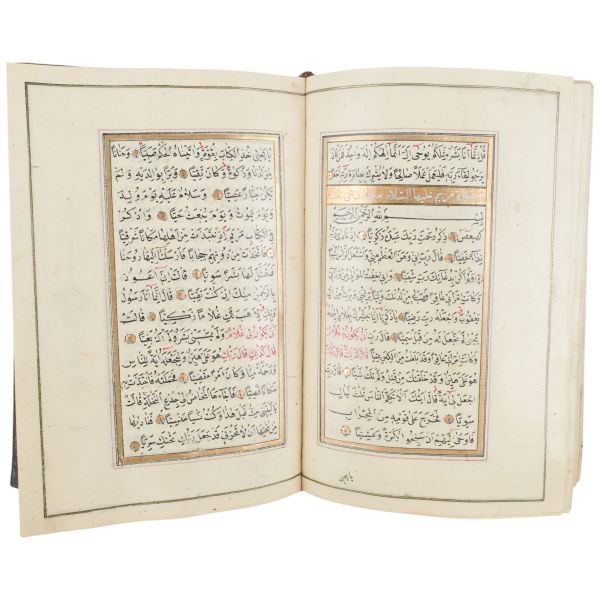 قُلْ اِنَّمَا اَنَا بَشَرٌ مِثْلُكُمْ يُوحٰى اِلَيَّ اَنَّمَا اِلٰهُكُمْ اِلٰهٌ وَاحِدٌ فَمَنْ كَانَ
يَرْجُو لِقَاءَ رَبِّهِ فَلْيَعْمَلْ عَمَلًا صَالِحًا وَلَا يُشْرِكْ بِعِبَادَةِ رَبِّهِ اَحَدًا
سورة مريم عليها السلام
بِسْمِ اللهِ الرَّحْمٰنِ الرَّحِيمِ
كهيعص ذِكْرُ رَحْمَتِ رَبِّكَ عَبْدَهُ زَكَرِيَّا اِذْ نَادٰى رَبَّهُ
نِدَاءً خَفِيًّا قَالَ رَبِّ اِنِّي وَهَنَ الْعَظْمُ مِنِّي وَاشْتَعَلَ الرَّأْسُ
شَيْبًا وَلَمْ اَكُنْ بِدُعَائِكَ رَبِّ شَقِيًّا وَاِنِّي خِفْتُ الْمَوَالِيَ مِنْ وَرَائِي
وَكَانَتِ امْرَأَتِي عَاقِرًا فَهَبْ لِي مِنْ لَدُنْكَ وَلِيًّا يَرِثُنِي وَيَرِثُ مِنْ اٰلِ
يَعْقُوبَ وَاجْعَلْهُ رَبِّ رَضِيًّا يَا زَكَرِيَّا اِنَّا نُبَشِّرُكَ بِغُلَامٍ اسْمُهُ
يَحْيٰى لَمْ نَجْعَلْ لَهُ مِنْ قَبْلُ سَمِيًّا قَالَ رَبِّ اَنّٰى يَكُونُ لِي غُلَامٌ
وَكَانَتِ امْرَأَتِي عَاقِرًا وَقَدْ بَلَغْتُ مِنَ الْكِبَرِ عِتِيًّا قَالَ كَذٰلِكَ قَالَ رَبُّكَ
هُوَ عَلَيَّ هَيِّنٌ وَقَدْ خَلَقْتُكَ مِنْ قَبْلُ وَلَمْ تَكُ شَيْئًا قَالَ رَبِّ
اجْعَلْ لِي اٰيَةً قَالَ اٰيَتُكَ اَلَّا تُكَلِّمَ النَّاسَ ثَلٰثَ لَيَالٍ
سَوِيًّا فَخَرَجَ عَلٰى قَوْمِهِ مِنَ الْمِحْرَابِ
فَاَوْحٰى اِلَيْهِمْ اَنْ سَبِّحُوا بُكْرَةً وَعَشِيًّا
يا يحيى
يَا يَحْيٰى خُذِ الْكِتَابَ بِقُوَّةٍ وَاٰتَيْنَاهُ الْحُكْمَ صَبِيًّا وَحَنَانًا
مِنْ لَدُنَّا وَزَكٰوةً وَكَانَ تَقِيًّا وَبَرًّا بِوَالِدَيْهِ وَلَمْ
يَكُنْ جَبَّارًا عَصِيًّا وَسَلَامٌ عَلَيْهِ يَوْمَ وُلِدَ
وَيَوْمَ يَمُوتُ وَيَوْمَ يُبْعَثُ حَيًّا وَاذْكُرْ
فِي الْكِتَابِ مَرْيَمَ اِذِ انْتَبَذَتْ مِنْ اَهْلِهَا مَكَانًا شَرْقِيًّا
فَاتَّخَذَتْ مِنْ دُونِهِمْ حِجَابًا فَاَرْسَلْنَا اِلَيْهَا رُوحَنَا
فَتَمَثَّلَ لَهَا بَشَرًا سَوِيًّا قَالَتْ اِنِّي اَعُوذُ
بِالرَّحْمٰنِ مِنْكَ اِنْ كُنْتَ تَقِيًّا قَالَ اِنَّمَا اَنَا رَسُولُ
رَبِّكِ لِاَهَبَ لَكِ غُلَامًا زَكِيًّا قَالَتْ
اَنّٰى يَكُونُ لِي غُلَامٌ وَلَمْ يَمْسَسْنِي بَشَرٌ وَلَمْ اَكُ بَغِيًّا
قَالَ كَذٰلِكِ قَالَ رَبُّكِ هُوَ عَلَيَّ هَيِّنٌ وَلِنَجْعَلَهُ اٰيَةً لِلنَّاسِ
وَرَحْمَةً مِنَّا وَكَانَ اَمْرًا مَقْضِيًّا فَحَمَلَتْهُ فَانْتَبَذَتْ بِهِ
مَكَانًا قَصِيًّا فَاَجَاءَهَا الْمَخَاضُ اِلٰى جِذْعِ النَّخْلَةِ قَالَتْ
يَا لَيْتَنِي مِتُّ قَبْلَ هٰذَا وَكُنْتُ نَسْيًا مَنْسِيًّا فَنَادٰيهَا
مِنْ تَحْتِهَا اَلَّا تَحْزَنِي قَدْ جَعَلَ رَبُّكِ تَحْتَكِ سَرِيًّا